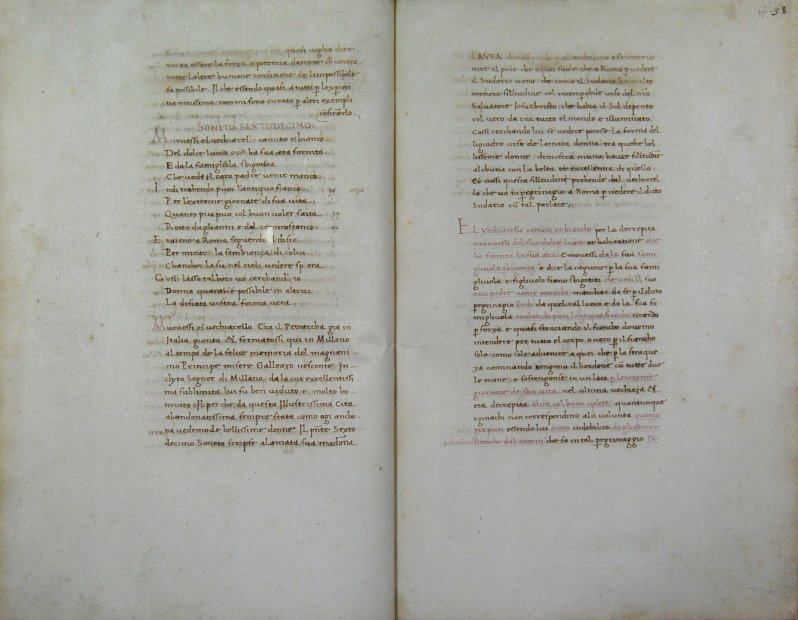 quasi voglia dire
tanta essere la forza, et potentia, damore, ch contra
tutte laltre humane conditione de limpossibile
fa possibile. Il che essendo quasi a tutti p experien
tia notissimo non mi sono curato p altri exempli
SONETO SEXTODECIMO.
Movessi el vechiarello canuto et bianco
Del dolce luoco ou' ha sua æta fornita
E da la famigliola sbigotita
Che vede il caro padre venir manco
Indi trahendo puoi lantiquo fianco
Per lextreme giornate di sua vita,
Quanto piu puo col buon voler saita
Rotto dagli anni, e dal stanco
E viene a Roma seguendo el disio
Per mirar la sembianza di colui
Chanchor la su nel ciel vedere spera
Cossi lasso talhor vo cerchando io
Donna quanto e possibile in altrui
La disiata vostra forma vera.
Movessi el vechiarello. Era il Petrarcha gia in
Italia gionto, et fermatossi qui in Millano
al tempo de la felice memoria del magnani
mo Principe misere Galeazo vesconte, In
clyto Segnor di Millano, da la cui excellentissi
ma sublimita lui fu ben viduto, e molto ho
norato. Il per che da questa Illustrissima Cita
abondanatissima sempre stata como ogi ancho
ra vedemo de bellissime donne, IL pnte Sexto
decimo Soneto scripse a lamata sua madona
38
LAURA dimostrando qual medesimo a seintervenire
nire al pare che aquei suole che a Roma p vedere
il Sudario vano, che como il Sudario ha molto
menore similitudine col incompabile viso del nro
Salvatore Jesu christo, che habia il Sol depento
col vero da cui tutto el mondo e illuminato.
Cossi cerchando lui se vedere potesse la forma del
ligiadro viso de lamata donna, tra queste bel
lissime donne, dimostra niuna havere silitudie
alchuna con la belta et excellentia di quello
Et cussi questa silitudine prehende dal vechiarel
lo che va in pegrinagio a Roma p vedere il dicto
Sudario cū tal parlare.
EL Vechiarello canuto et biancho per la decrepita
movessi del suo dolce luoco et habitatione ove
ha fornita la sua æta. E movessi da la sua fami
gliuola sbigotita, e dice la cagione p la sua fami
gliuola e figliuoli siano sbigotiti che vedi il suo
caro padre venir mancho manchar da se p il dicto
pegrinagio Indi da quel tal luoco e da la sua fa
migliuola trahendo puoi lantiquo fiancho tirando
p forza e quasi straciando il fiancho, dovemo
intendere per tutto el corpo, overo p il fiancho
solo, como sole advenire a quei che p la strache
za caminando tengino il bordone cū tutte due
le mane, e sostengonse in un lato p lextreme
giornate di sua vita nel ultima vechieza et
eta decrepita saita col buon volere quantunque
i ginochi non correspondino a la volunta quanto
piu puoi essendo lui rotto indebilito da gli anni e
stancho dal camin che fa in tal pegrinaggio Et